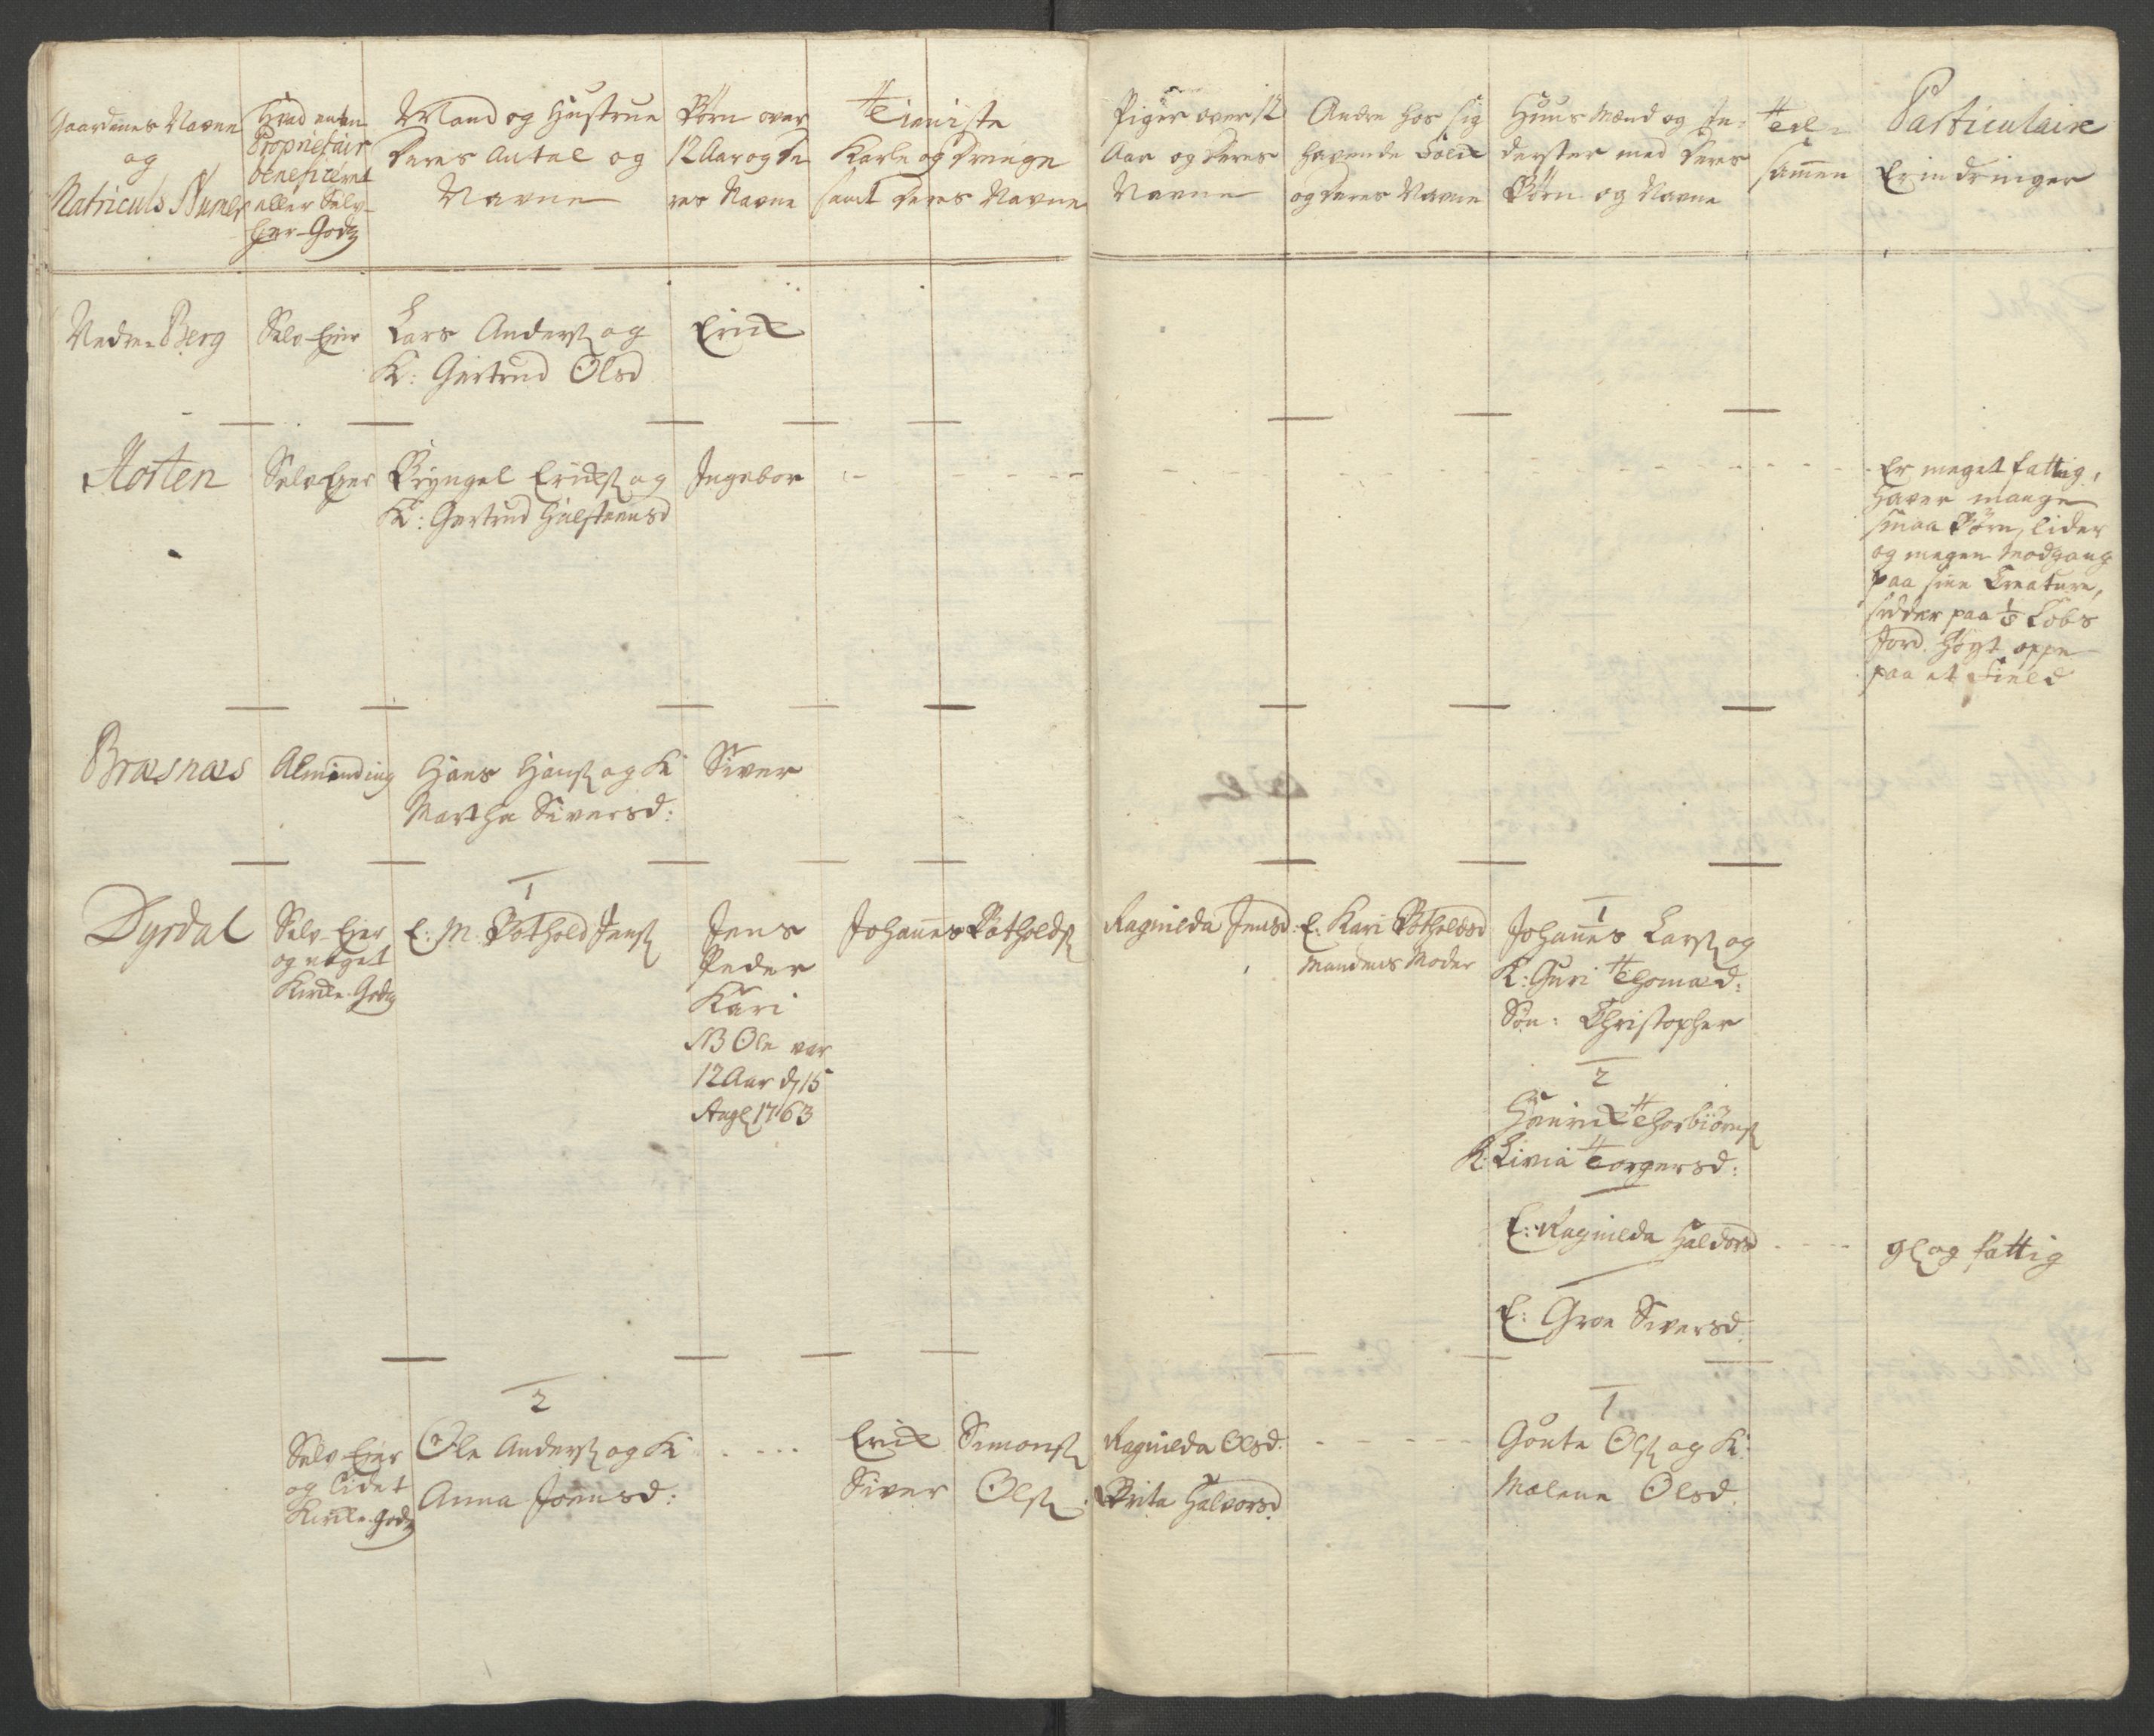 Gaardenes Navne
og
Matriculs Numer
Hvad enten
Proprietair
beneficeret
eller Selv-
Eyer-Godz
Mand og Hustrue
deres Antal og
Navne
Børn over
12 Aar og de
res Navne
Tieniste
Karle og Drenge
samt deres Navne
Piger over 12
Aar og deres
Navne
Andre hos sig
havende Folck
og deres Navne
Huus Mænd og In-
derster med deres
Børn og Navne
Til-
samen
Particulaire
Erindringer
Nedre Berg
Selv-Ejer
Lars Anders: og
K: Giertrud Olsd
Erick
Horten
Selv Ejer
Bryngel Ericks: og
K: Giertrud Halsteensd
Ingebor
Er meget fattig,
haver mange
smaa Børn, lider
og megen Modgang
paa sine Creature,
sidder paa Løbs
Jord. Høyt oppe
paa et Field
Bræsnæs
Alminding
Hans Hans: og K
Martha Siversd:
Siver
Dyrdal
Selv-Ejer
og noget
Kircke-Godz
1
E: M: Botholf Jens:
Jens
Peder
Kari
NB Ole var
12 Aar d 15
Aug 1763
Johannes Botholds:
Ragnilda Jensd:
E: Kari Botholdsd
Mandens Moder
1
Johannes Lars: og
K: Guri Thomæd:
Søn: Christopher
2
Henrick Thorbiørns:
K: Livia Torgersd:
E: Ragnilda Haldorsd
gl og fattig
E: Groe Siversd.
Selv-Ejer
og lidet
Kircke-Godz
2
Ole Anders: og K
Anna Joensd:
Erick Simons:
Siver Ols:
Ragnilda Olsd.
Brita Halvorsd.
1
Goute Ols: og K:
Malene Olsd.